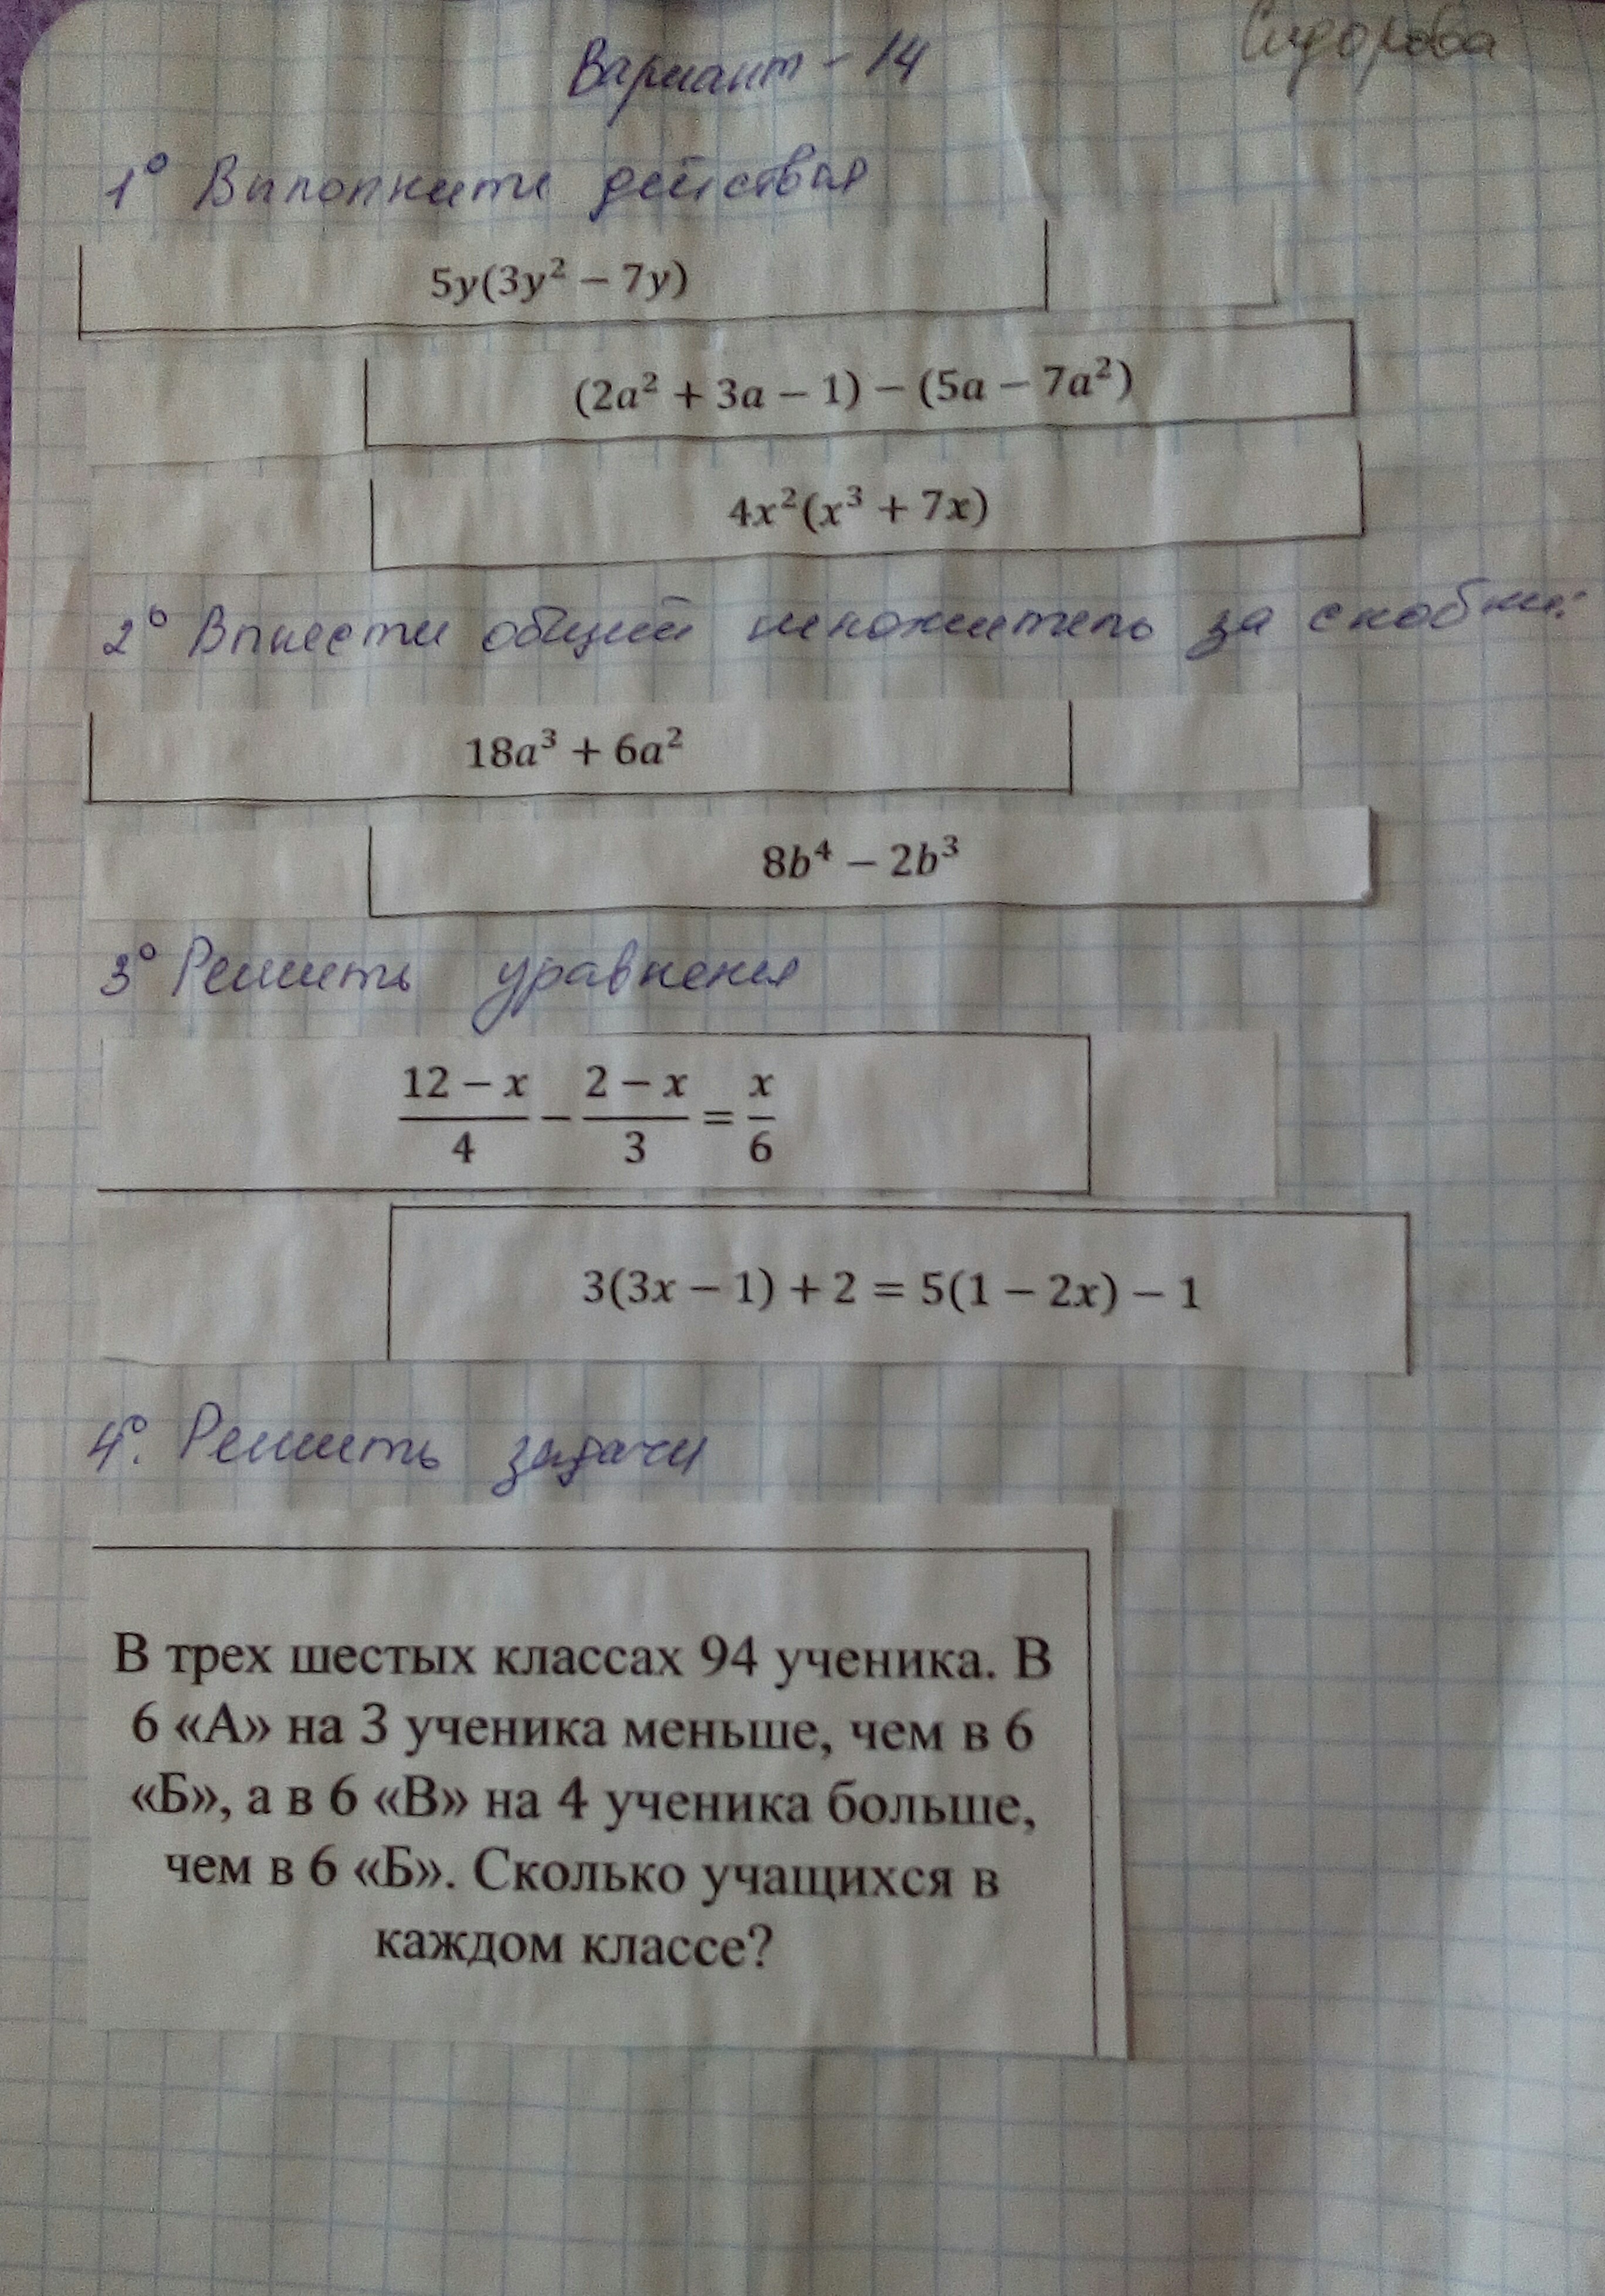 Вариант - 14
Сидорова
1° Выполнить действия
5y(3y² − 7y)
(2a² + 3a − 1) − (5a − 7a²)
4x²(x³ + 7x)
2° Вынести общий множитель за скобки:
18a³ + 6a²
8b⁴ − 2b³
3° Решить уравнения
(12 − x)/4 − (2 − x)/3 = x/6
3(3x − 1) + 2 = 5(1 − 2x) − 1
4°. Решить задачи
В трех шестых классах 94 ученика. В
6 «А» на 3 ученика меньше, чем в 6
«Б», а в 6 «В» на 4 ученика больше,
чем в 6 «Б». Сколько учащихся в
каждом классе?